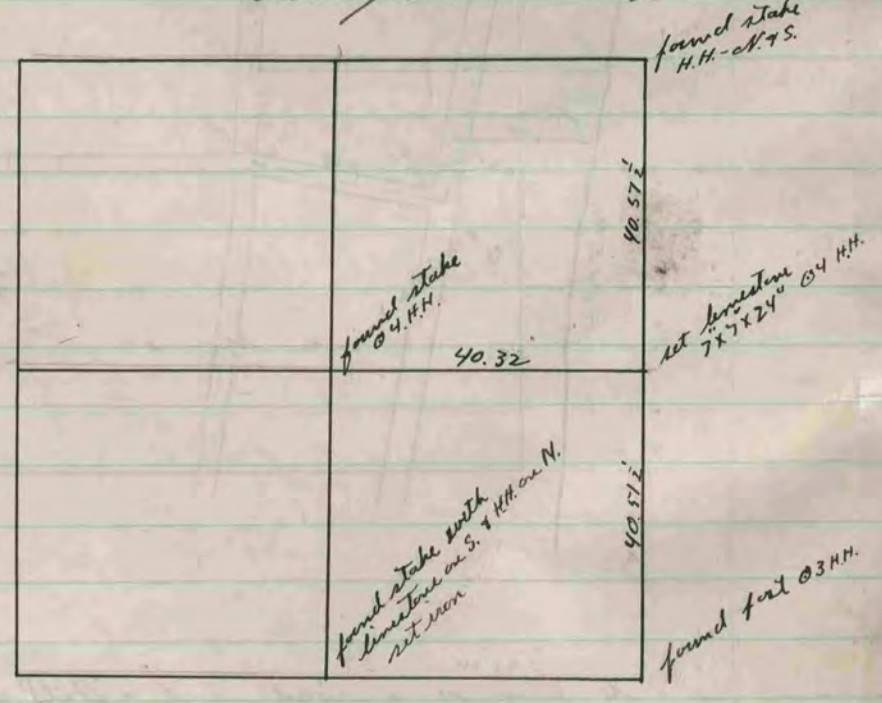 found stake
H.H. - N. & S.
40.57½
found stake
@ 4 H.H.
40.32
set limestone
7"x7"x24" @ 4 H.H.
found stake with
limestone on S. & H.H. on N.
set iron
40.51½
found post @ 3 H.H.